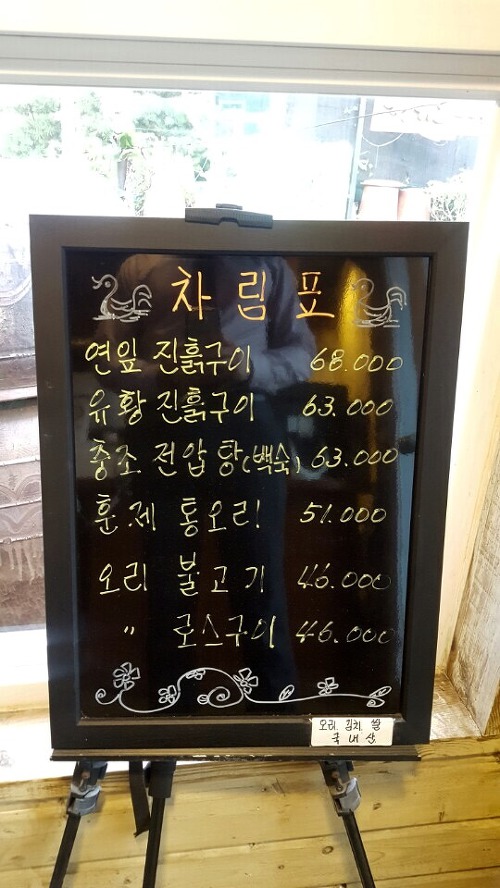 차림표
연잎 진흙구이 68.000
유황 진흙구이 63.000
중조 전압탕(백숙) 63.000
훈제 통오리 51.000
오리 불고기 46.000
〃 로스구이 46.000
오리, 김치, 쌀
국내산